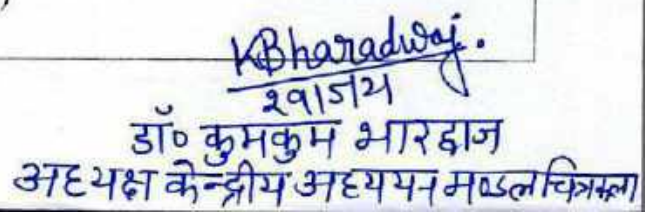 KBharadwaj.
डॉ० कुमकुम भारद्वाज
अध्यक्ष केन्द्रीय अध्ययन मण्डल चित्रकला